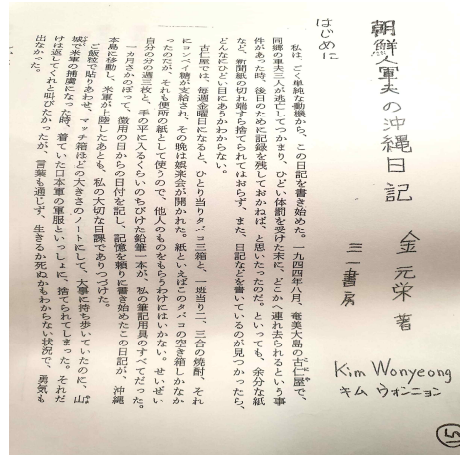 朝鮮人軍夫の沖縄日記
金元栄 著
三一書房
Kim Wonyeong
キム ウォンニョン
はじめに
私はごく単純な動機から、この日記を書き始めた。一九四四年八月、奄美大島の古仁屋で、
同郷の軍夫三人が逃亡してつかまり、ひどい体罰を受けた末に、どこかへ連れ去られるという事
件があった時、後日のために記録を残しておかねば、と思いたったのだ。といっても、余分な紙
など、新聞紙の切れ端すら捨てられてはおらず、また、日記などを書いているのが見つかったら、
どんなにひどい目にあうかわからない。
古仁屋では、毎週金曜日になると、ひとり当りタバコ三箱と、一班当り二、三合の焼酎、それ
にョンペイ糖が支給され、その晩は娯楽会が開かれた。紙といえばこのタバコの空き箱しかなか
ったのだが、それも便所の紙として使うので、他人のものをもらうわけにはいかない。せいぜい
自分の分の週三枚と、手の平に入るくらいのちびけた鉛筆一本が、私の筆記用具のすべてだった。
一ヵ月さかのぼって、徴用の日からの日付を記し、記憶を頼りに書き始めたこの日記が、沖縄
本島に移動し、米軍が上陸したあとも、私の大切な日課でありつづけた。
ご飯粒で貼りあわせ、マッチ箱ほどの大きさのノートにして、大事に持ち歩いていたのに、山
城で米軍の捕虜になった時、着ていた日本軍の軍服といっしょに、捨てられてしまった。それだ
けは返してくれと叫びたかったが、言葉も通じず、生きるか死ぬかもわからない状況で、勇気も
出なかった。